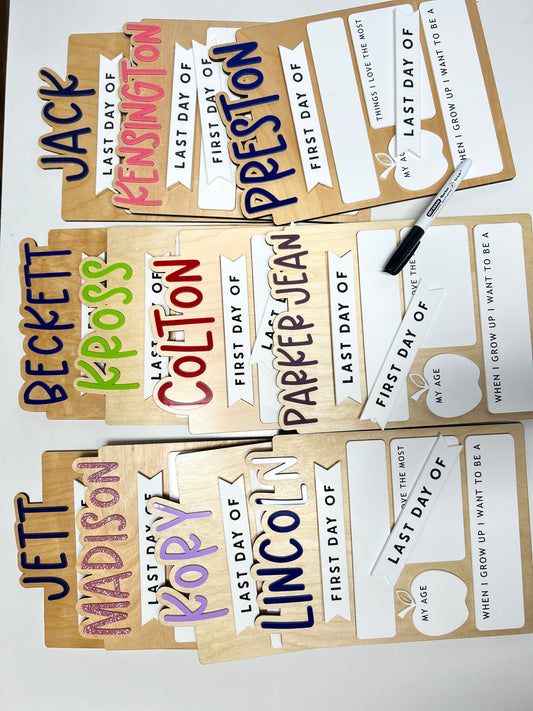 JACK
LAST DAY OF
KENSINGTON
LAST DAY OF
FIRST DAY OF
PRESTON
FIRST DAY OF
THINGS I LOVE THE MOST
LAST DAY OF
MY A
WHEN I GROW UP I WANT TO BE A
BECKETT
KROSS
LAST
COLTON
FIRST DAY OF
LAST
PARKER JEAN
LAST DAY OF
FIRST DAY OF
OVE THE MOST
MY AGE
WHEN I GROW UP I WANT TO BE A
JETT
MADISON
LAST DAY OF
KORY
LAST DAY OF
LINCOLN
FIRST DAY OF
OVE THE MOST
LAST DAY OF
MY AGE
WHEN I GROW UP I WANT TO BE A